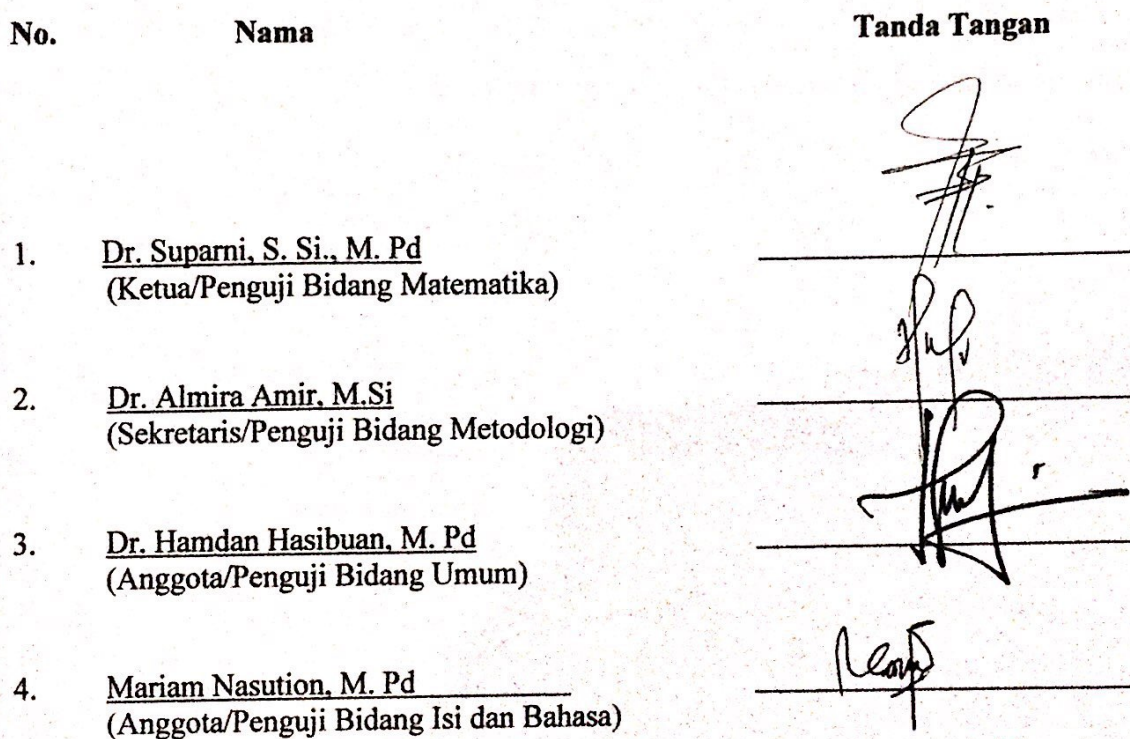 No. Nama Tanda Tangan
1. Dr. Suparni, S. Si., M. Pd
(Ketua/Penguji Bidang Matematika)
2. Dr. Almira Amir, M.Si
(Sekretaris/Penguji Bidang Metodologi)
3. Dr. Hamdan Hasibuan, M. Pd
(Anggota/Penguji Bidang Umum)
4. Mariam Nasution, M. Pd
(Anggota/Penguji Bidang Isi dan Bahasa)